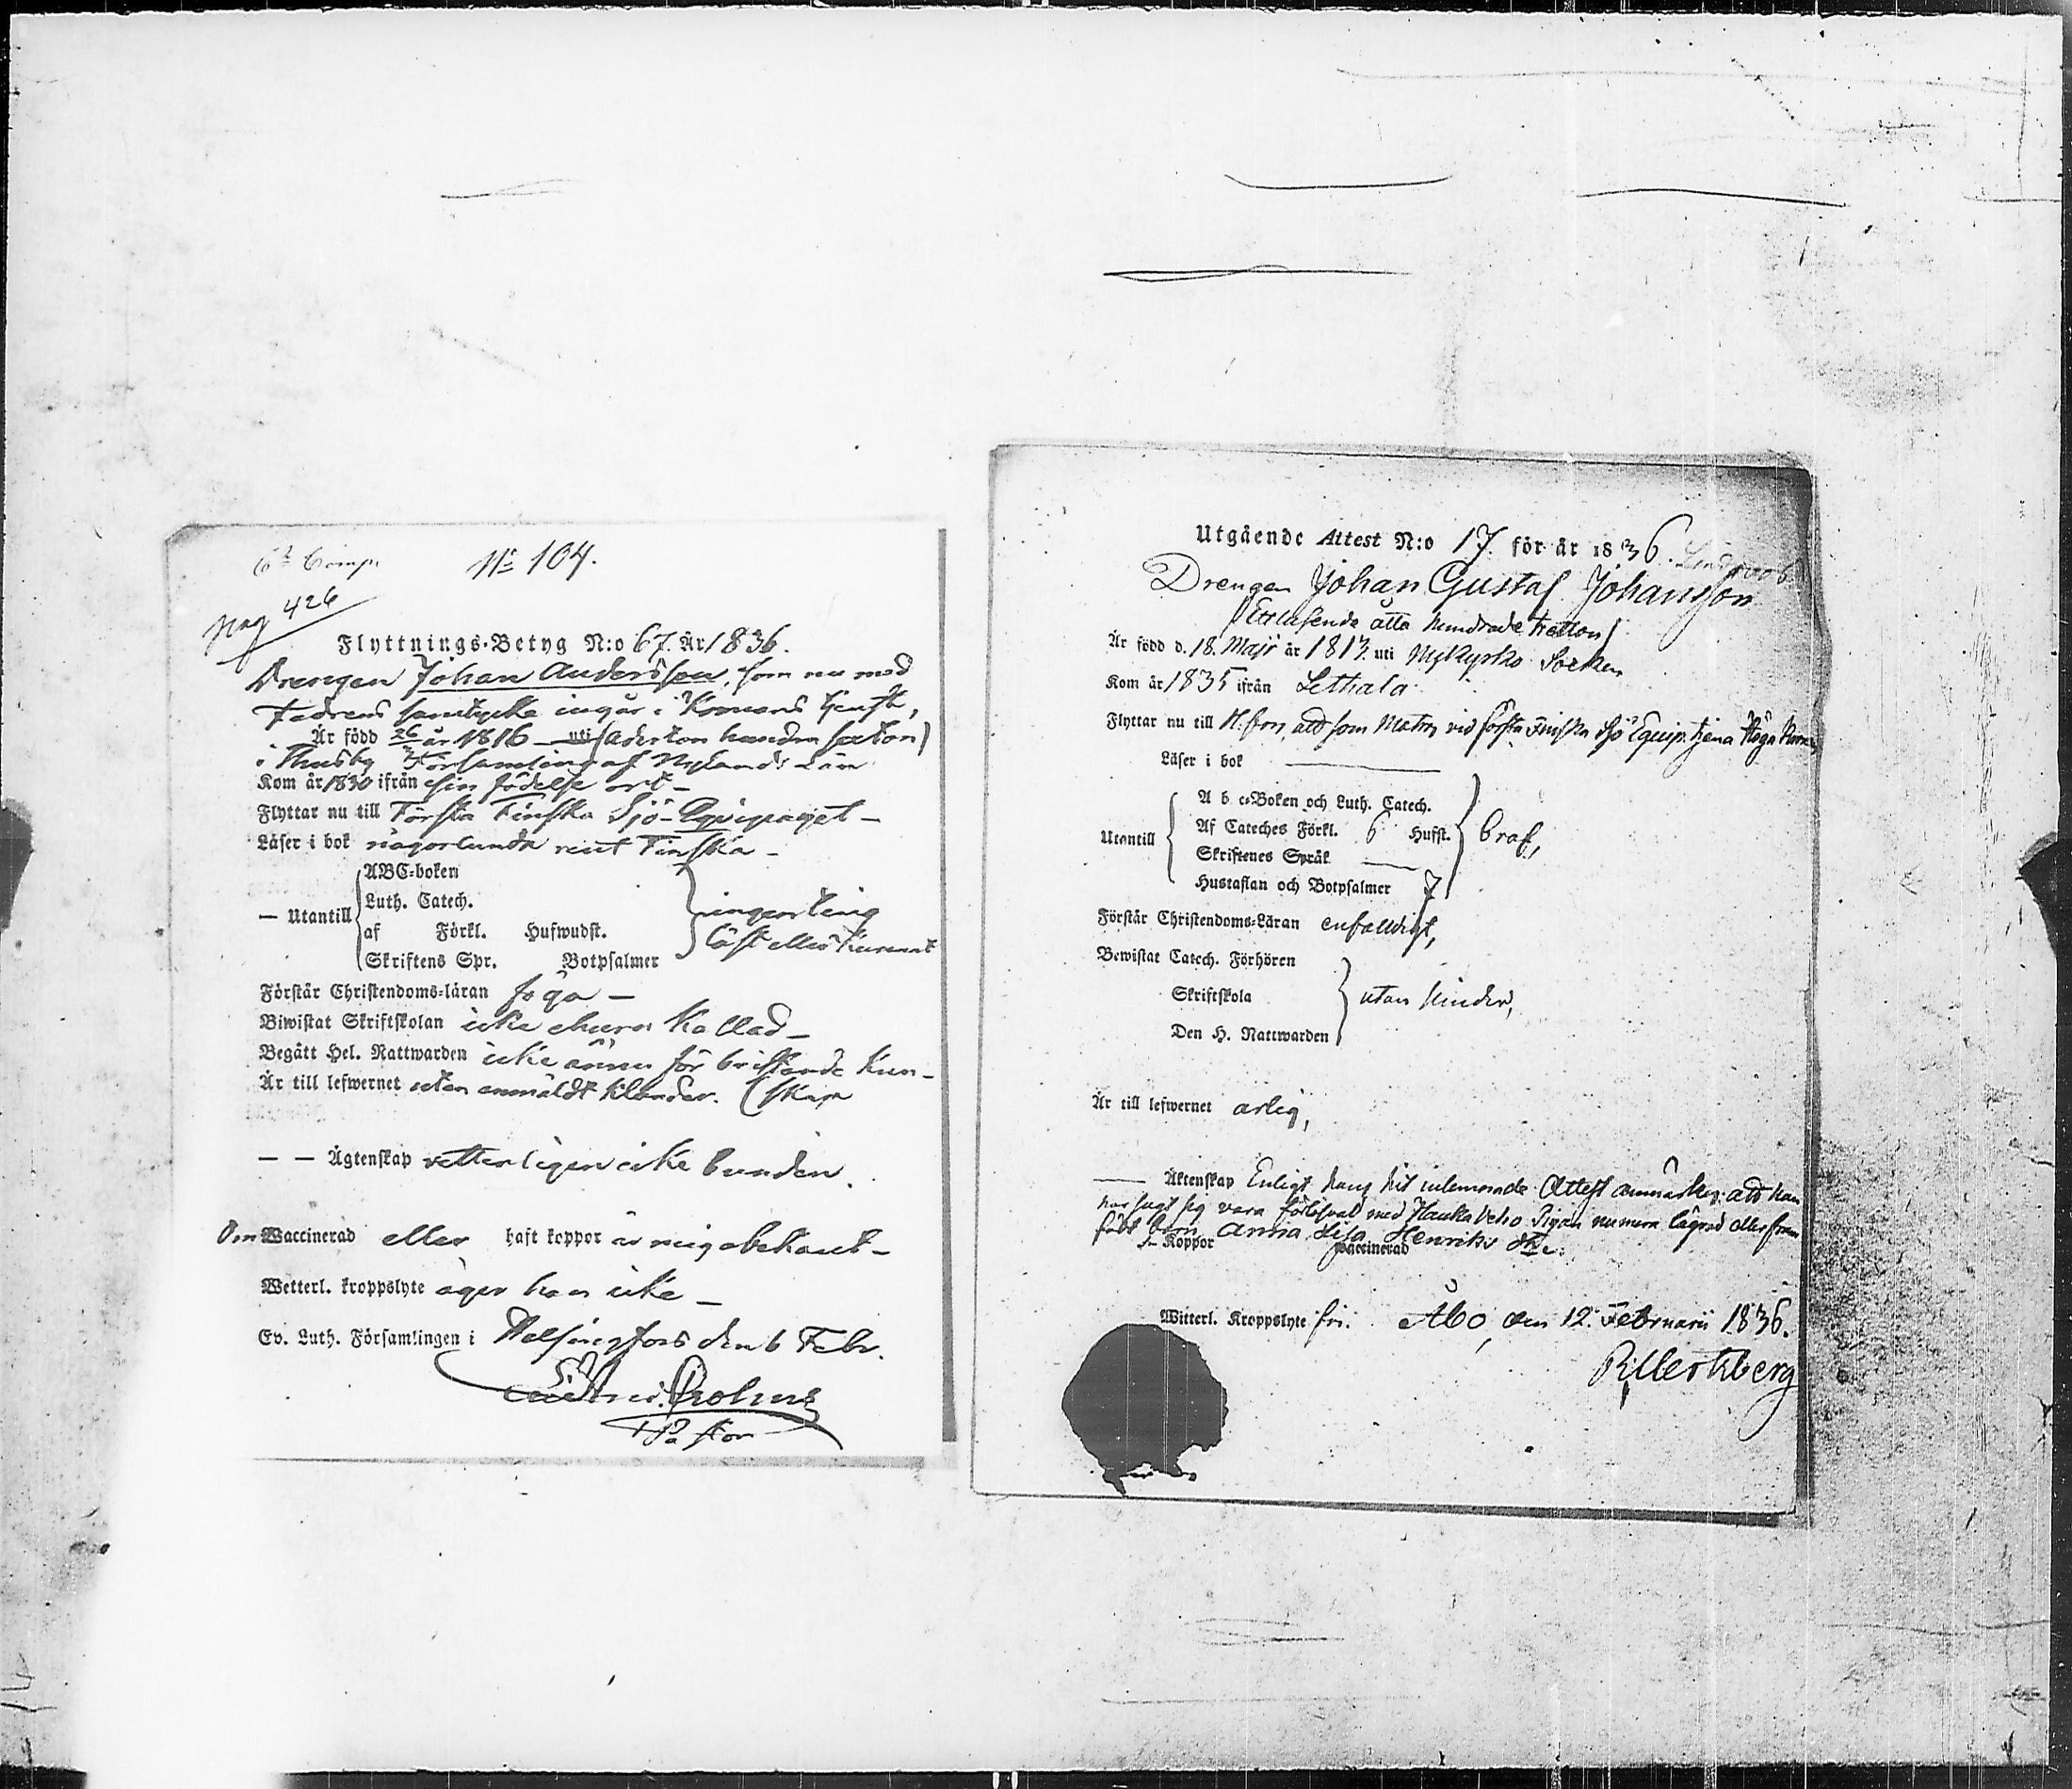 6te Comp.
No 104.
pag 426
Flyttnings-Betyg N:o 67. År 1836.
Drengen Johan Andersson, som nu med
Fadrens samtycke ingår i Kronans tjenst,
Är född 26/3 år 1816 – uti (Aderton hundra sexton)
i Thusby Församling af Nylands Län
Kom år 1830 ifrån sin födelse ort –
Flyttar nu till Första Finska Sjö-Equipaget –
Läser i bok någorlunda rent Finska –
ABC-boken
Luth. Catech.
– Utantill
af Förkl. Hufwudst.
Skriftens Spr. Botpsalmer
ingenting
läst eller kunnat
Förstår Christendoms-läran föga –
Biwistat Skriftskolan icke ehuru kallad –
Begått Hel. Nattwarden icke ännu för bristande Kun-
Är till lefwernet utan anmäldt klander. (skap
– – Ägtenskap vetterligen icke bunden.
Om Waccinerad eller haft koppor är mig obekant –
Wetterl. kroppslyte äger han icke –
Ev. Luth. Församlingen i Helsingfors den 6 Febr.
Pastor
Utgående Attest N:o 17. för år 1836.
Drengen Johan Gustaf Johansson
/Ettusende åtta hundrade tretton/
Är född d. 18. Maji år 1813. uti Nykyrko Socken
Kom år 1835 ifrån Lethala
Flyttar nu till H.fors, att som Matros vid första Finska Sjö Equip. tjena Höga Kronan
Läser i bok
A b c-Boken och Luth. Catech.
Af Cateches Förkl. 6 Hufst.
Utantill
Skriftenes Språk
Hustaflan och Botpsalmer 7
braf,
Förstår Christendoms-Läran enfaldigt,
Bewistat Catech. Förhören
Skriftskola
utan hinder,
Den H. Nattwarden
Är till lefwernet ärlig,
Äktenskap Enligt hans hit inlemnade Attest anmärkes: att han
har sagt sig vara förlofvad med Haukka Veho Pigan numera lägrad eller fram
födt barn Anna Lisa Henriks dtr.
Koppor Waccinerad
Witterl. Kroppslyte fri. Åbo, den 12. Februarii 1836.